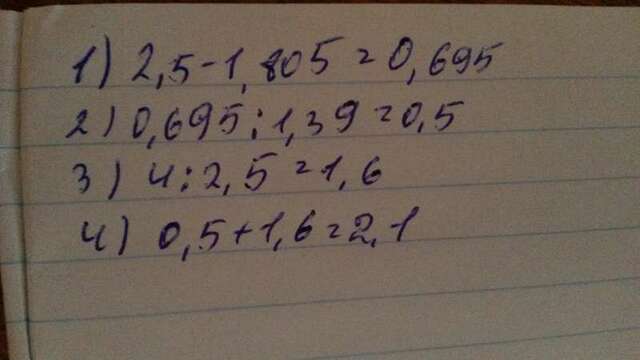 1) 2,5-1,805=0,695
2) 0,695:1,39=0,5
3) 4:2,5=1,6
4) 0,5+1,6=2,1